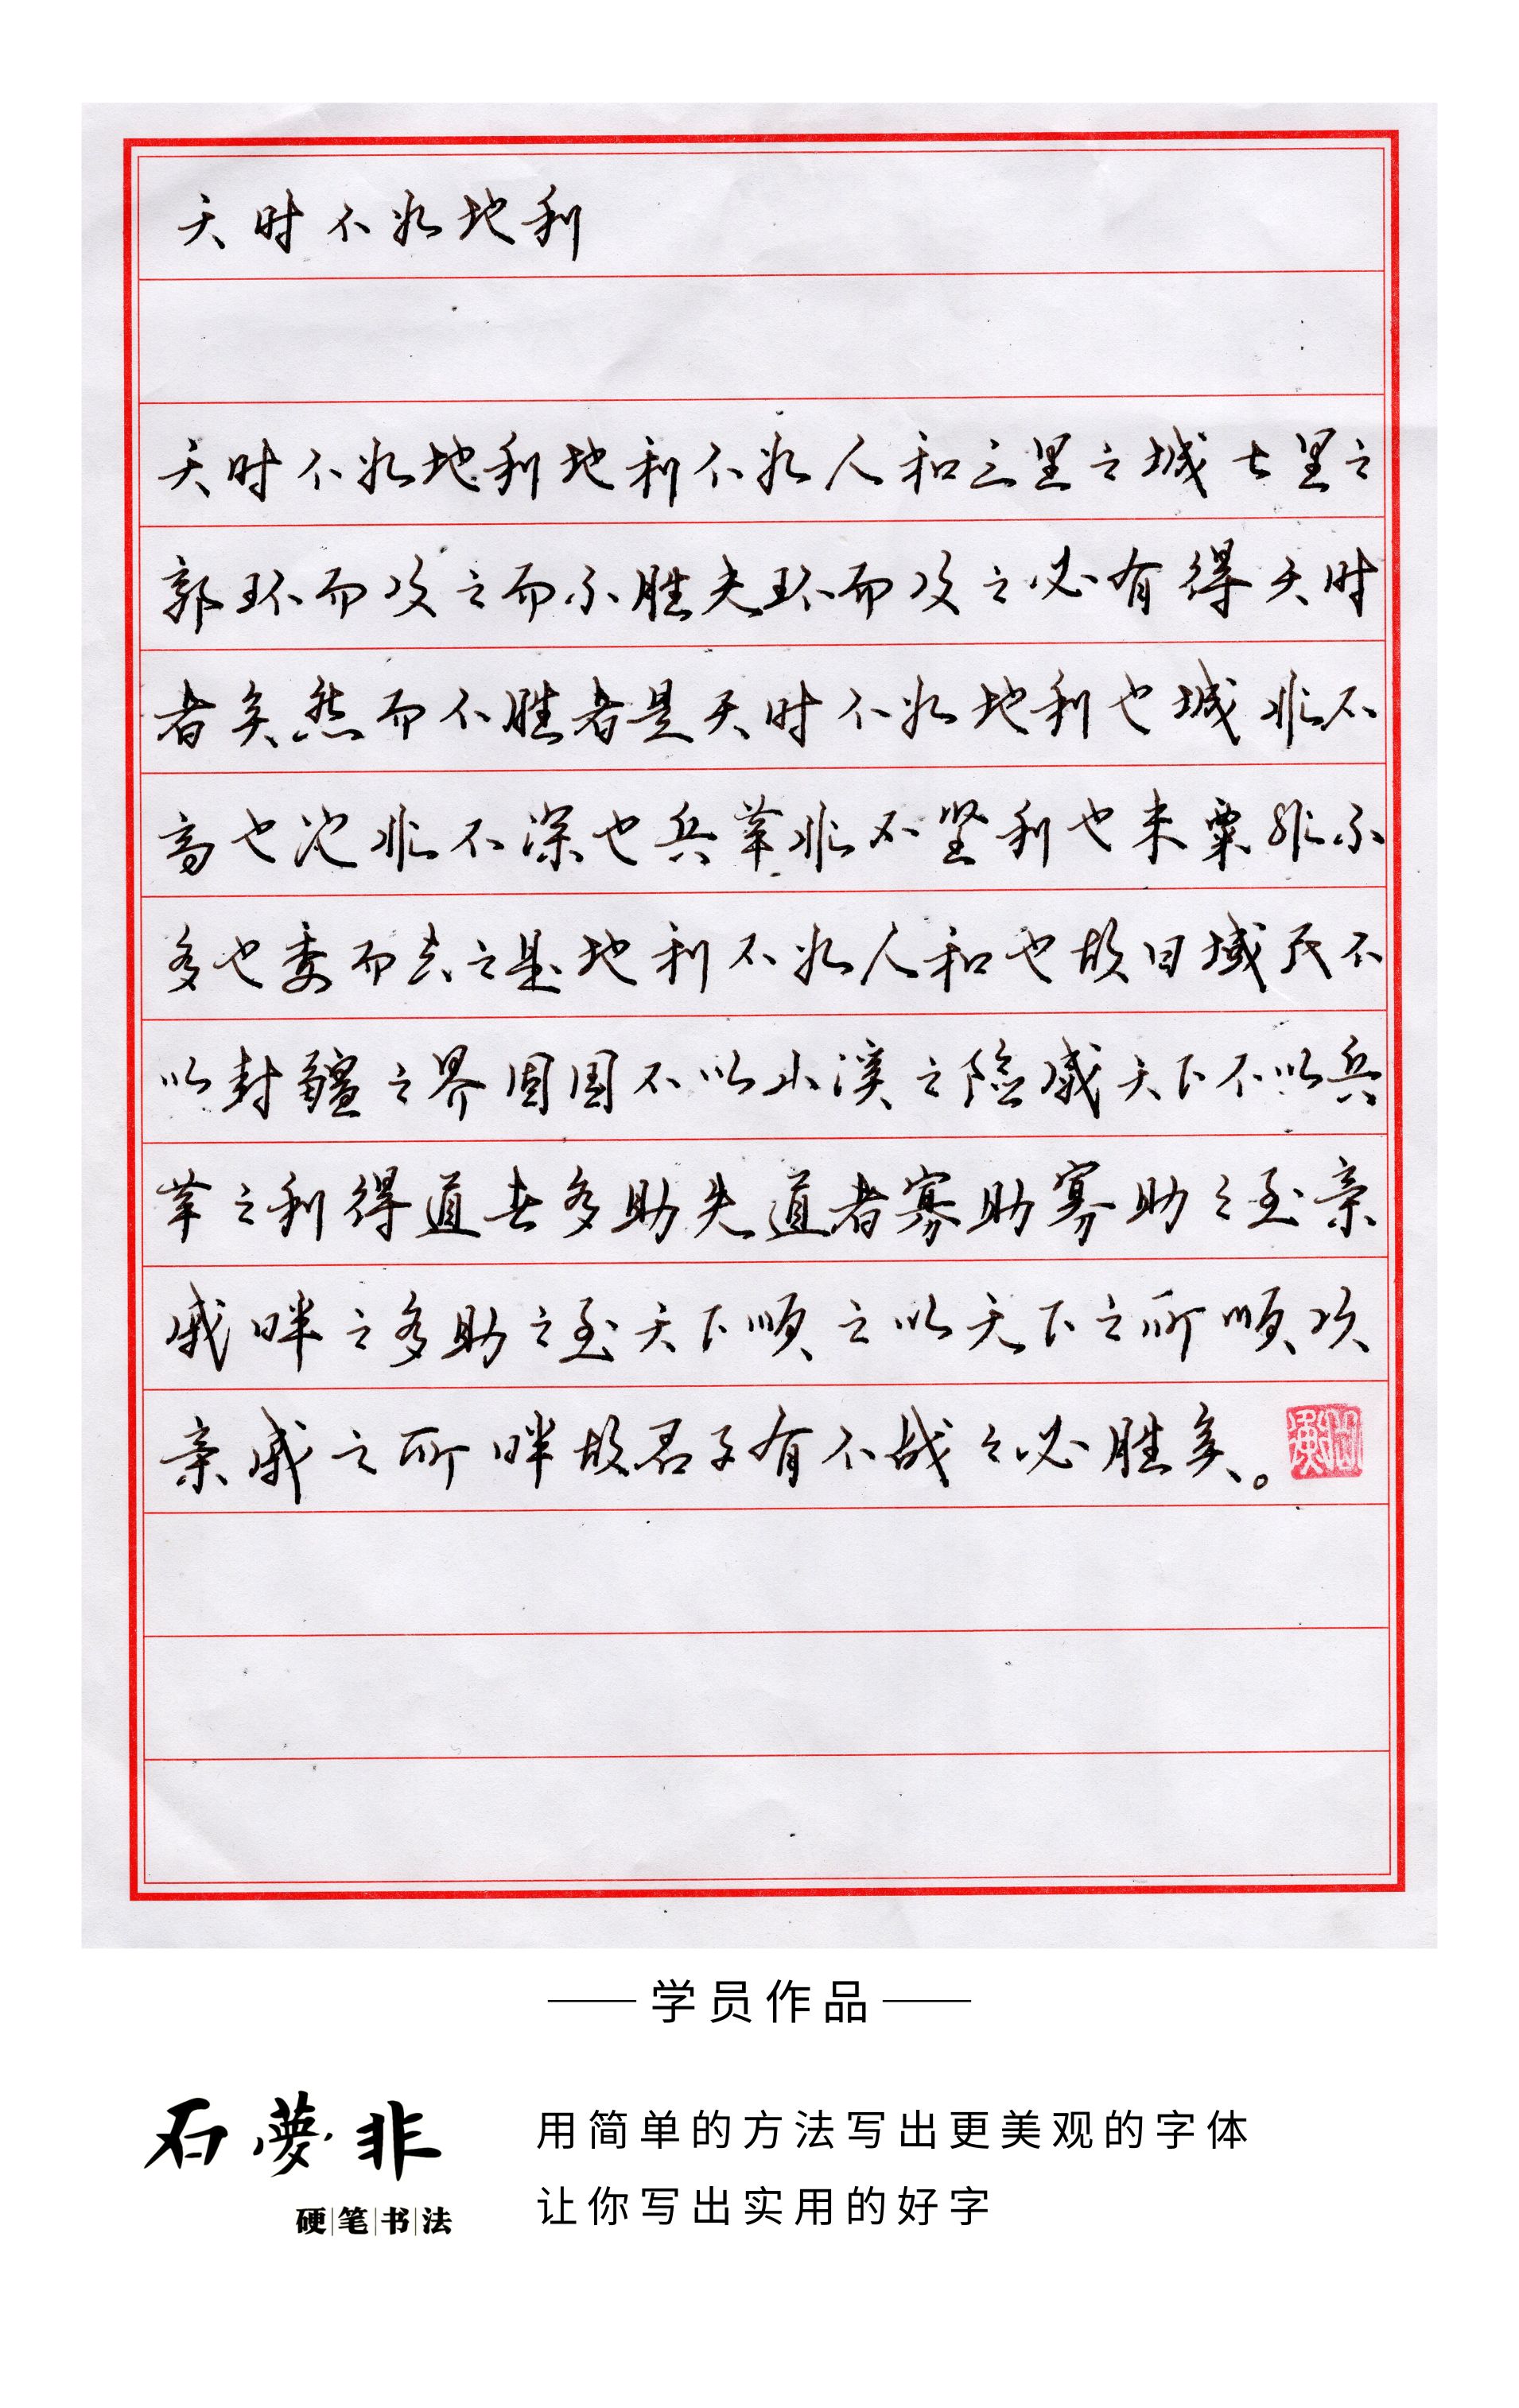 天时不如地利
天时不如地利地利不如人和三里之城七里之
郭环而攻之而不胜夫环而攻之必有得天时
者矣然而不胜者是天时不如地利也城非不
高也池非不深也兵革非不坚利也米粟非不
多也委而去之是地利不如人和也故曰域民不
以封疆之界固国不以山溪之险威天下不以兵
革之利得道者多助失道者寡助寡助之至亲
戚畔之多助之至天下顺之以天下之所顺攻
亲戚之所畔故君子有不战之必胜矣。
学员作品
石夢非
硬笔书法
用简单的方法写出更美观的字体
让你写出实用的好字